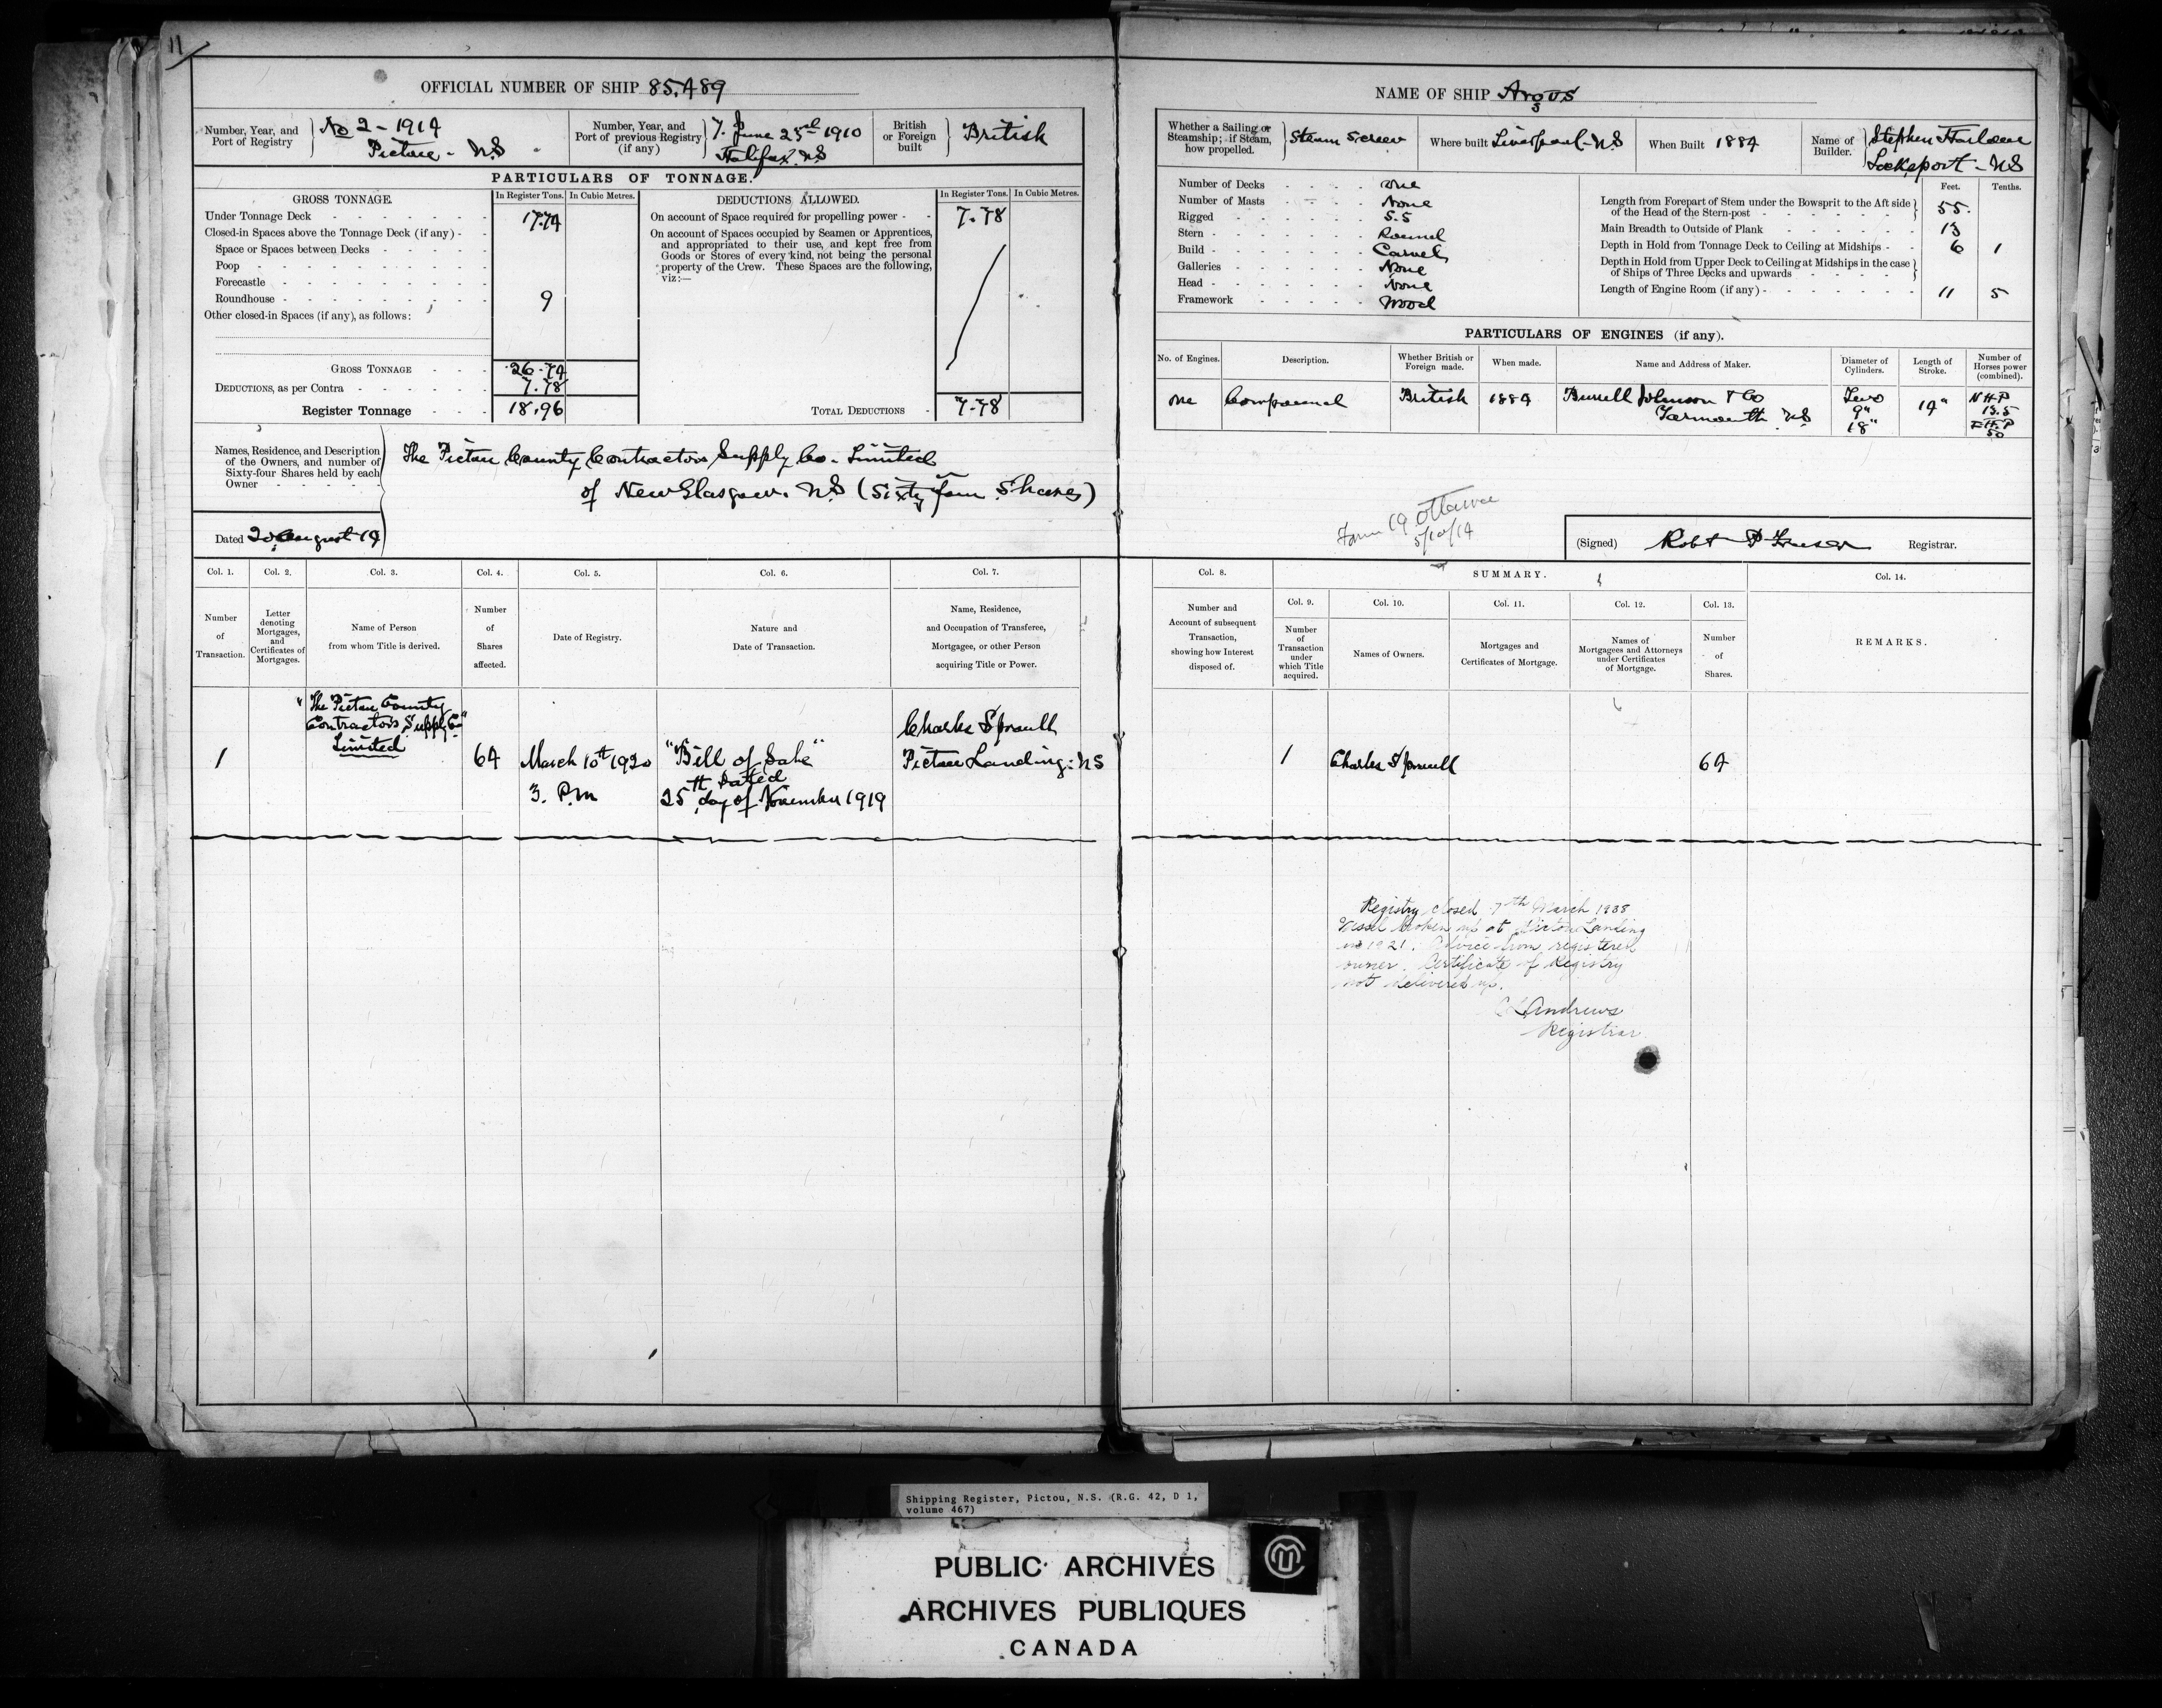 11
OFFICIAL NUMBER OF SHIP 85.489
Number, Year, and Port of Registry
No 2 - 1914
Pictou - N.S
Number, Year, and Port of previous Registry (if any)
7. June 23rd 1910
Halifax N.S
British or Foreign built
British
PARTICULARS OF TONNAGE.
GROSS TONNAGE. In Register Tons. In Cubic Metres.
Under Tonnage Deck 17.74
Closed-in Spaces above the Tonnage Deck (if any)
Space or Spaces between Decks
Poop
Forecastle
Roundhouse 9
Other closed-in Spaces (if any), as follows:
GROSS TONNAGE 26.74
DEDUCTIONS, as per Contra 7.78
Register Tonnage 18.96
DEDUCTIONS ALLOWED. In Register Tons. In Cubic Metres.
On account of Space required for propelling power 7.78
On account of Spaces occupied by Seamen or Apprentices,
and appropriated to their use, and kept free from
Goods or Stores of every kind, not being the personal
property of the Crew. These Spaces are the following,
viz:—
TOTAL DEDUCTIONS 7.78
Names, Residence, and Description
of the Owners, and number of
Sixty-four Shares held by each
Owner
The Pictou County Contractors Supply Co. Limited
of New Glasgow. N.S (Sixty four Shares)
Dated 20 August 14
Col. 1. Col. 2. Col. 3. Col. 4. Col. 5. Col. 6. Col. 7.
Number of Transaction.
Letter denoting Mortgages, and Certificates of Mortgages.
Name of Person from whom Title is derived.
Number of Shares affected.
Date of Registry.
Nature and Date of Transaction.
Name, Residence, and Occupation of Transferee, Mortgagee, or other Person acquiring Title or Power.
1
"The Pictou County
Contractors Supply Co"
Limited
64
March 10th 1920
3. P.m
"Bill of Sale"
Dated
25th day of November 1919
Charles Sproull
Pictou Landing: NS
NAME OF SHIP Argus
Whether a Sailing or Steamship; if Steam, how propelled.
Steam Screw
Where built Liverpool - N.S
When Built 1884
Name of Builder.
Stephen
Lockeport - N.S
Number of Decks one
Number of Masts None
Rigged S.S
Stern Round
Build Carvel
Galleries None
Head None
Framework Wood
Feet. Tenths.
Length from Forepart of Stem under the Bowsprit to the Aft side
of the Head of the Stern-post 55.
Main Breadth to Outside of Plank 13
Depth in Hold from Tonnage Deck to Ceiling at Midships 6 1
Depth in Hold from Upper Deck to Ceiling at Midships in the case
of Ships of Three Decks and upwards
Length of Engine Room (if any) 11 5
PARTICULARS OF ENGINES (if any).
No. of Engines. Description. Whether British or Foreign made. When made. Name and Address of Maker. Diameter of Cylinders. Length of Stroke. Number of Horses power (combined).
one Compound British 1884 Burrell Johnson & Co
Yarmouth N.S
Two
9"
18"
14"
N H.P
13.5
I H.P
50
Form 19 Ottawa
5/10/14
(Signed) Robt P Fraser Registrar.
Col. 8. SUMMARY. Col. 14.
Col. 9. Col. 10. Col. 11. Col. 12. Col. 13.
Number and Account of subsequent Transaction, showing how Interest disposed of.
Number of Transaction under which Title acquired.
Names of Owners.
Mortgages and Certificates of Mortgage.
Names of Mortgagees and Attorneys under Certificates of Mortgage.
Number of Shares.
REMARKS.
1 Charles Sproull 64
Registry closed 7th March 1938
Vessel broken up at Pictou Landing
in 1921. Advice from registered
owner. Certificate of Registry
not delivered up.
Andrews
Registrar
Shipping Register, Pictou, N.S. (R.G. 42, D 1,
volume 467)
PUBLIC ARCHIVES
ARCHIVES PUBLIQUES
CANADA